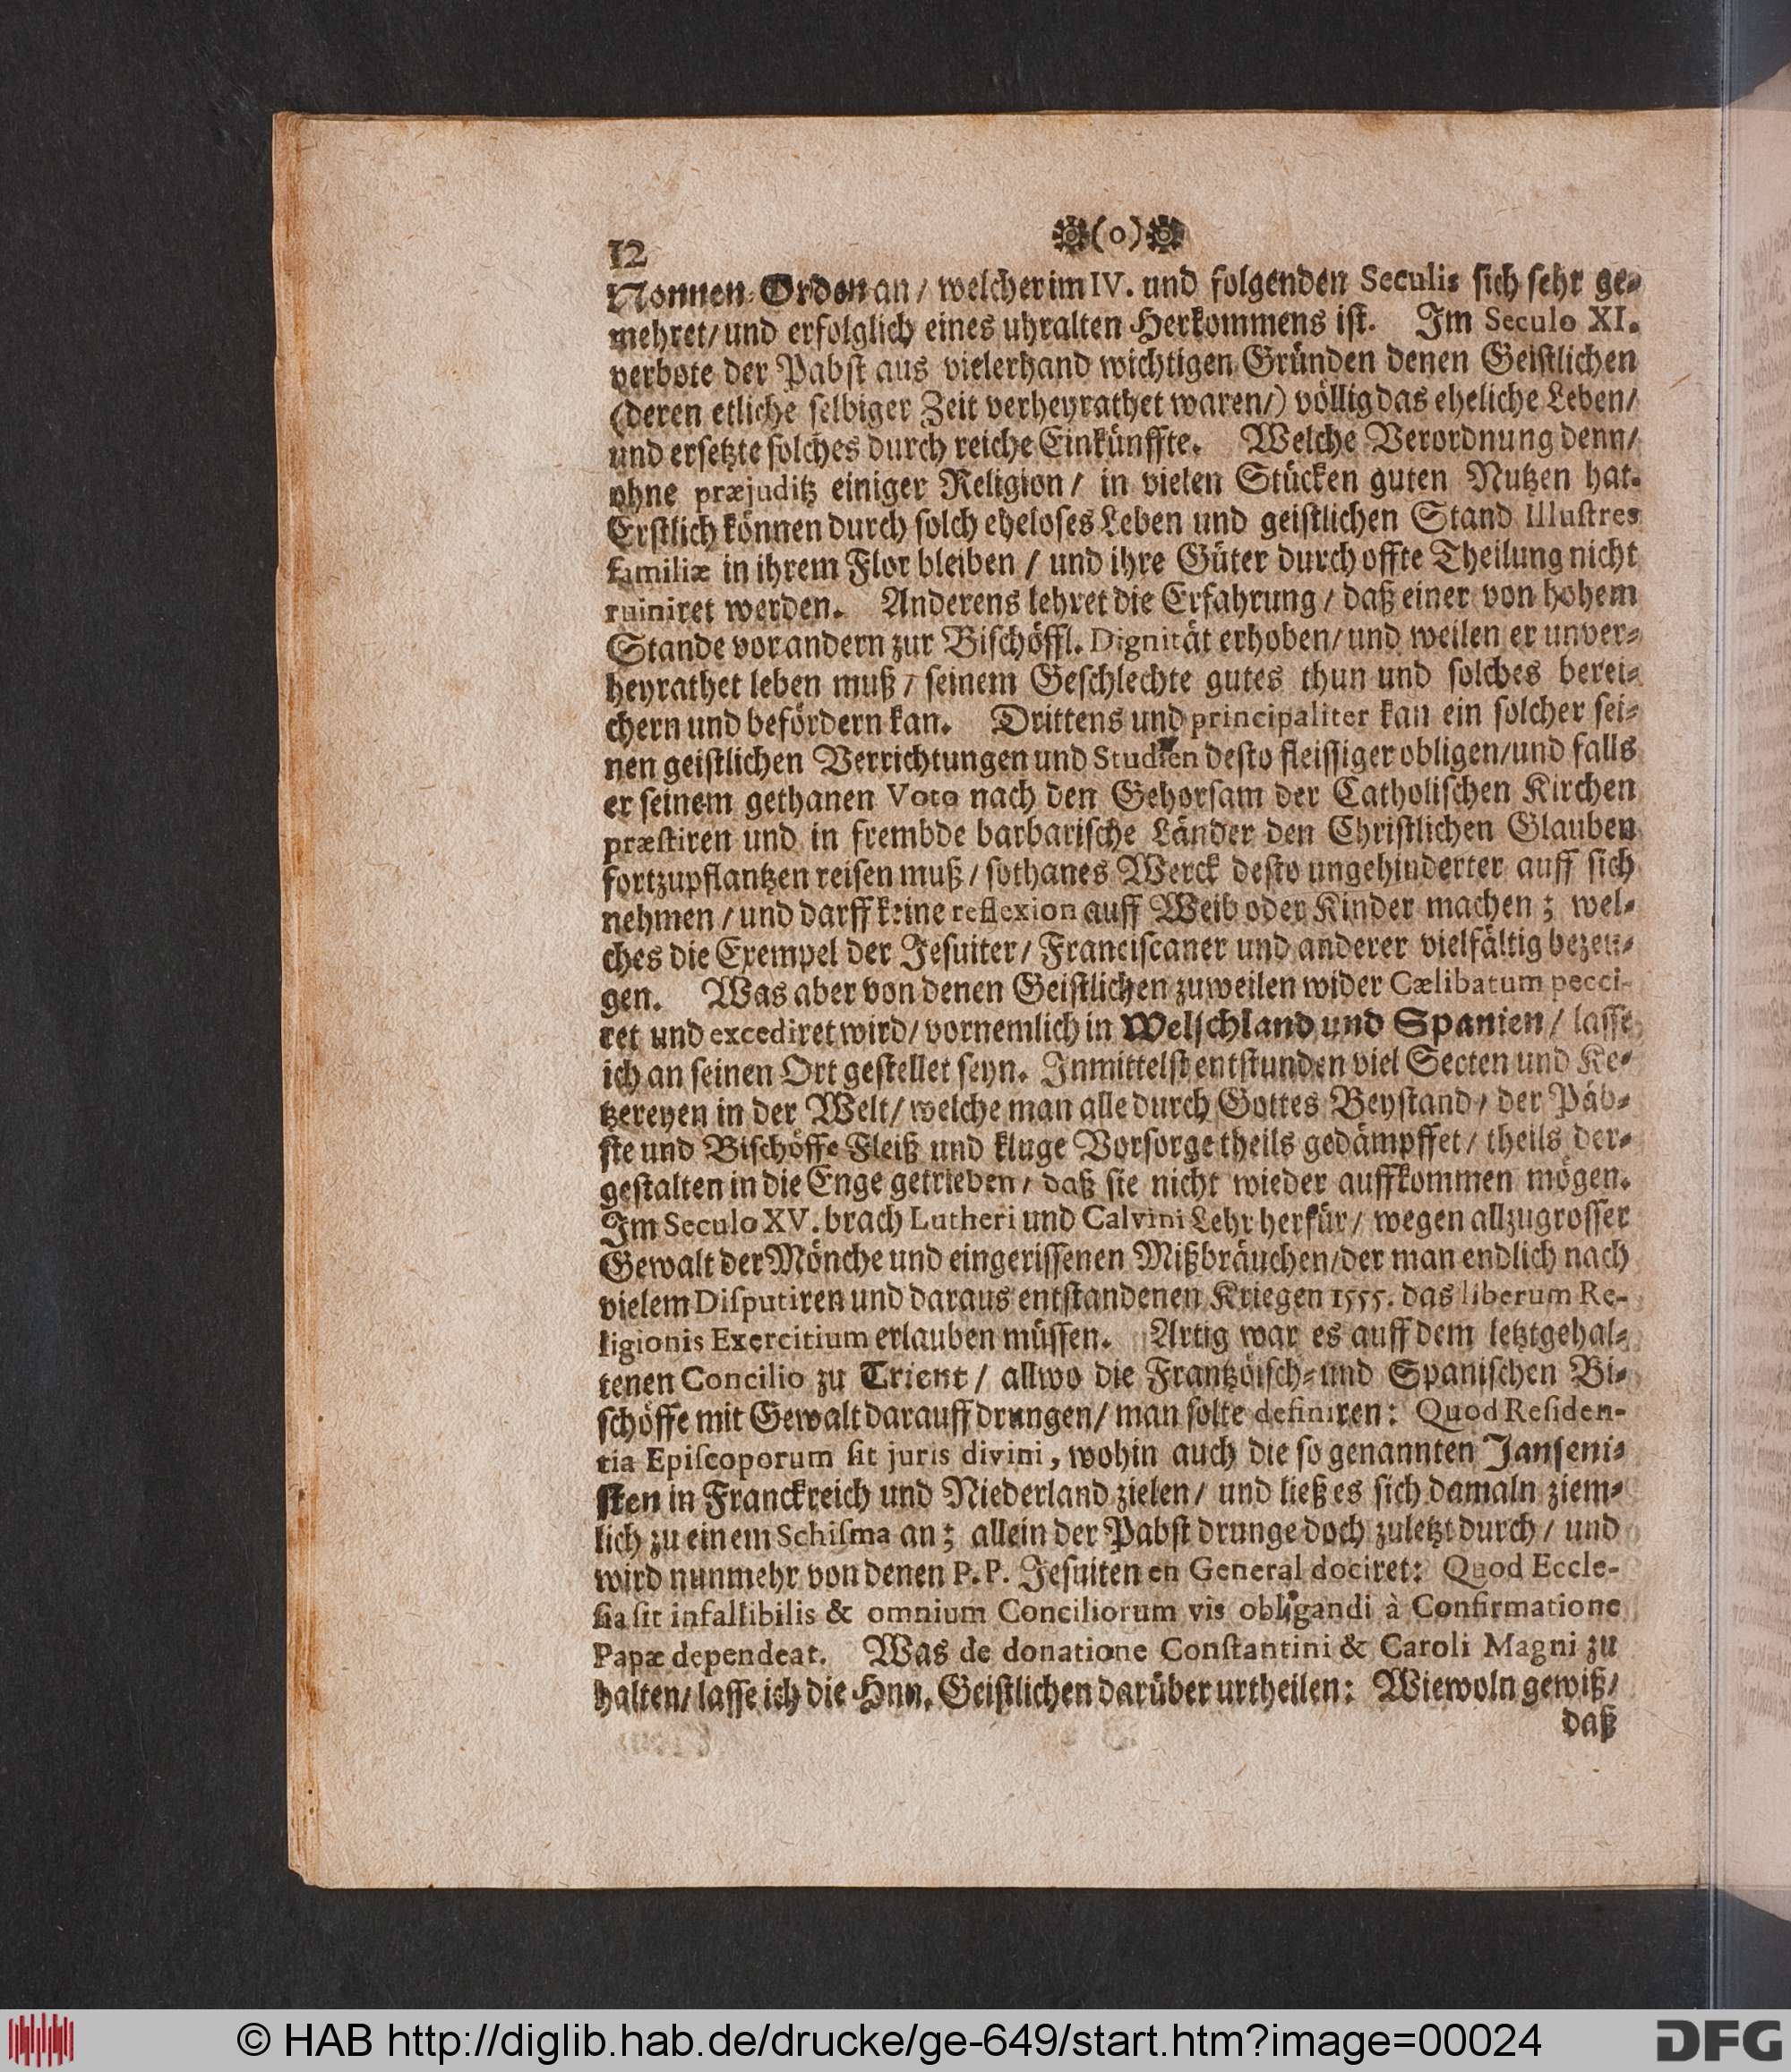 12
(o)
Nonnen-Orden an / welcher im IV. und folgenden Seculis sich sehr ge-
mehret / und erfolglich eines uhralten Herkommens ist. Im Seculo XI.
verbote der Pabst aus vielerhand wichtigen Gründen denen Geistlichen
(deren etliche selbiger Zeit verheyrathet waren /) völlig das eheliche Leben /
und ersetzte solches durch reiche Einkünffte. Welche Verordnung denn /
ohne præjuditz einiger Religion / in vielen Stücken guten Nutzen hat.
Erstlich können durch solch eheloses Leben und geistlichen Stand Illustres
familiæ in ihrem Flor bleiben / und ihre Güter durch offte Theilung nicht
ruiniret werden. Anderens lehret die Erfahrung / daß einer von hohem
Stande vor andern zur Bischöffl. Dignität erhoben / und weilen er unver-
heyrathet leben muß / seinem Geschlechte gutes thun und solches berei-
chern und befördern kan. Drittens und principaliter kan ein solcher sei-
nen geistlichen Verrichtungen und Studien desto fleissiger obligen / und falls
er seinem gethanen Voto nach den Gehorsam der Catholischen Kirchen
præstiren und in frembde barbarische Länder den Christlichen Glauben
fortzupflantzen reisen muß / sothanes Werck desto ungehinderter auff sich
nehmen / und darff keine reflexion auff Weib oder Kinder machen ; wel-
ches die Exempel der Jesuiter / Franciscaner und anderer vielfältig bezeu-
gen. Was aber von denen Geistlichen zuweilen wider Cælibatum pecci-
ret und excediret wird / vornemlich in Welschland und Spanien / lasse
ich an seinen Ort gestellet seyn. Inmittelst entstunden viel Secten und Ke-
tzereyen in der Welt / welche man alle durch Gottes Beystand / der Päb-
ste und Bischöffe Fleiß und kluge Vorsorge theils gedämpffet / theils der-
gestalten in die Enge getrieben / daß sie nicht wieder auffkommen mögen.
Im Seculo XV. brach Lutheri und Calvini Lehr herfür / wegen allzugrosser
Gewalt der Mönche und eingerissenen Mißbräuchen / der man endlich nach
vielem Disputiren und daraus entstandenen Kriegen 1555. das liberum Re-
ligionis Exercitium erlauben müssen. Artig war es auff dem letztgehal-
tenen Concilio zu Trient / allwo die Frantzöisch- und Spanischen Bi-
schöffe mit Gewalt darauff drungen / man solte definiren: Quod Residen-
tia Episcoporum sit juris divini, wohin auch die so genannten Janseni-
sten in Franckreich und Niederland zielen / und ließ es sich damaln ziem-
lich zu einem Schisma an ; allein der Pabst drunge doch zuletzt durch / und
wird nunmehr von denen P. P. Jesuiten en General dociret: Quod Eccle-
sia sit infallibilis & omnium Conciliorum vis obligandi à Confirmatione
Papæ dependeat. Was de donatione Constantini & Caroli Magni zu
halten / lasse ich die Hnn. Geistlichen darüber urtheilen: Wiewoln gewiß /
daß
© HAB http://diglib.hab.de/drucke/ge-649/start.htm?image=00024
DFG